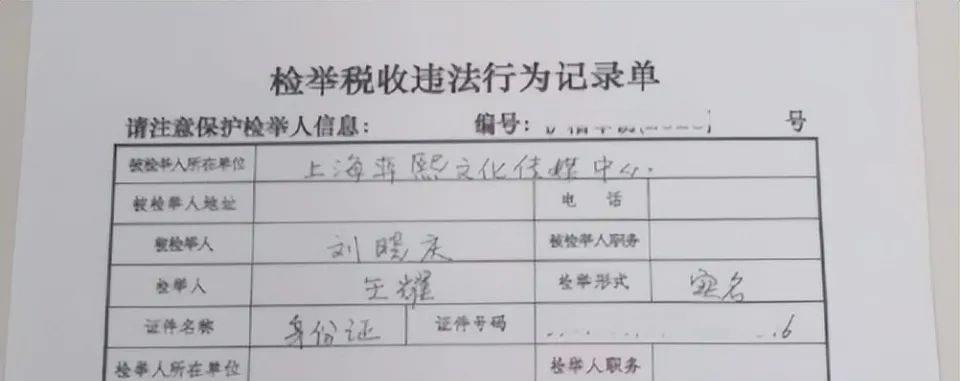 检举税收违法行为记录单
请注意保护检举人信息： 编号： 号
被检举人所在单位 上海 熙文化传媒中心.
被检举人地址 电 话
被检举人 刘晓庆 被检举人职务
检举人 王耀 检举形式 实名
证件名称 身份证 证件号码 6
检举人所在单位 检举人职务